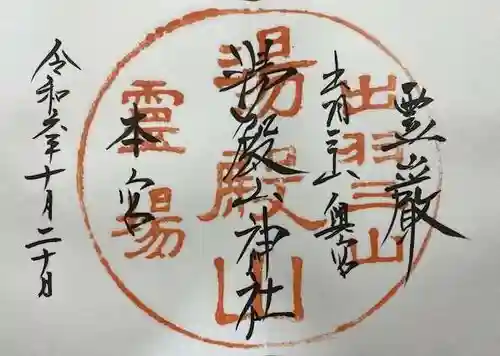 霊厳
出羽三山 奥宮
湯殿山神社
本宮
令和六年十月二十日
出羽三山
湯殿山
霊場